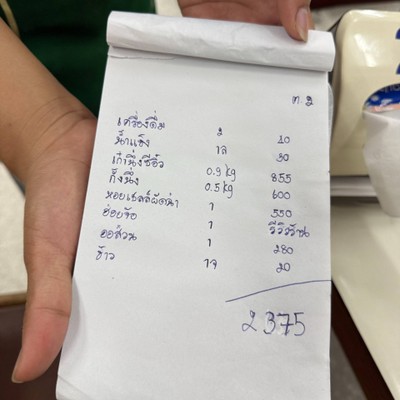 ต.2
เครื่องดื่ม 2 40
น้ำแข็ง 1ล 30
เก๋านึ่งซีอิ๊ว 0.9 kg 855
กั้งนึ่ง 0.5 kg 600
หอยเชลล์ผัดฉ่า 1 550
ฮ่อยจ๊อ 1
ออส่วน 1 280
ข้าว 1จ 20
2375